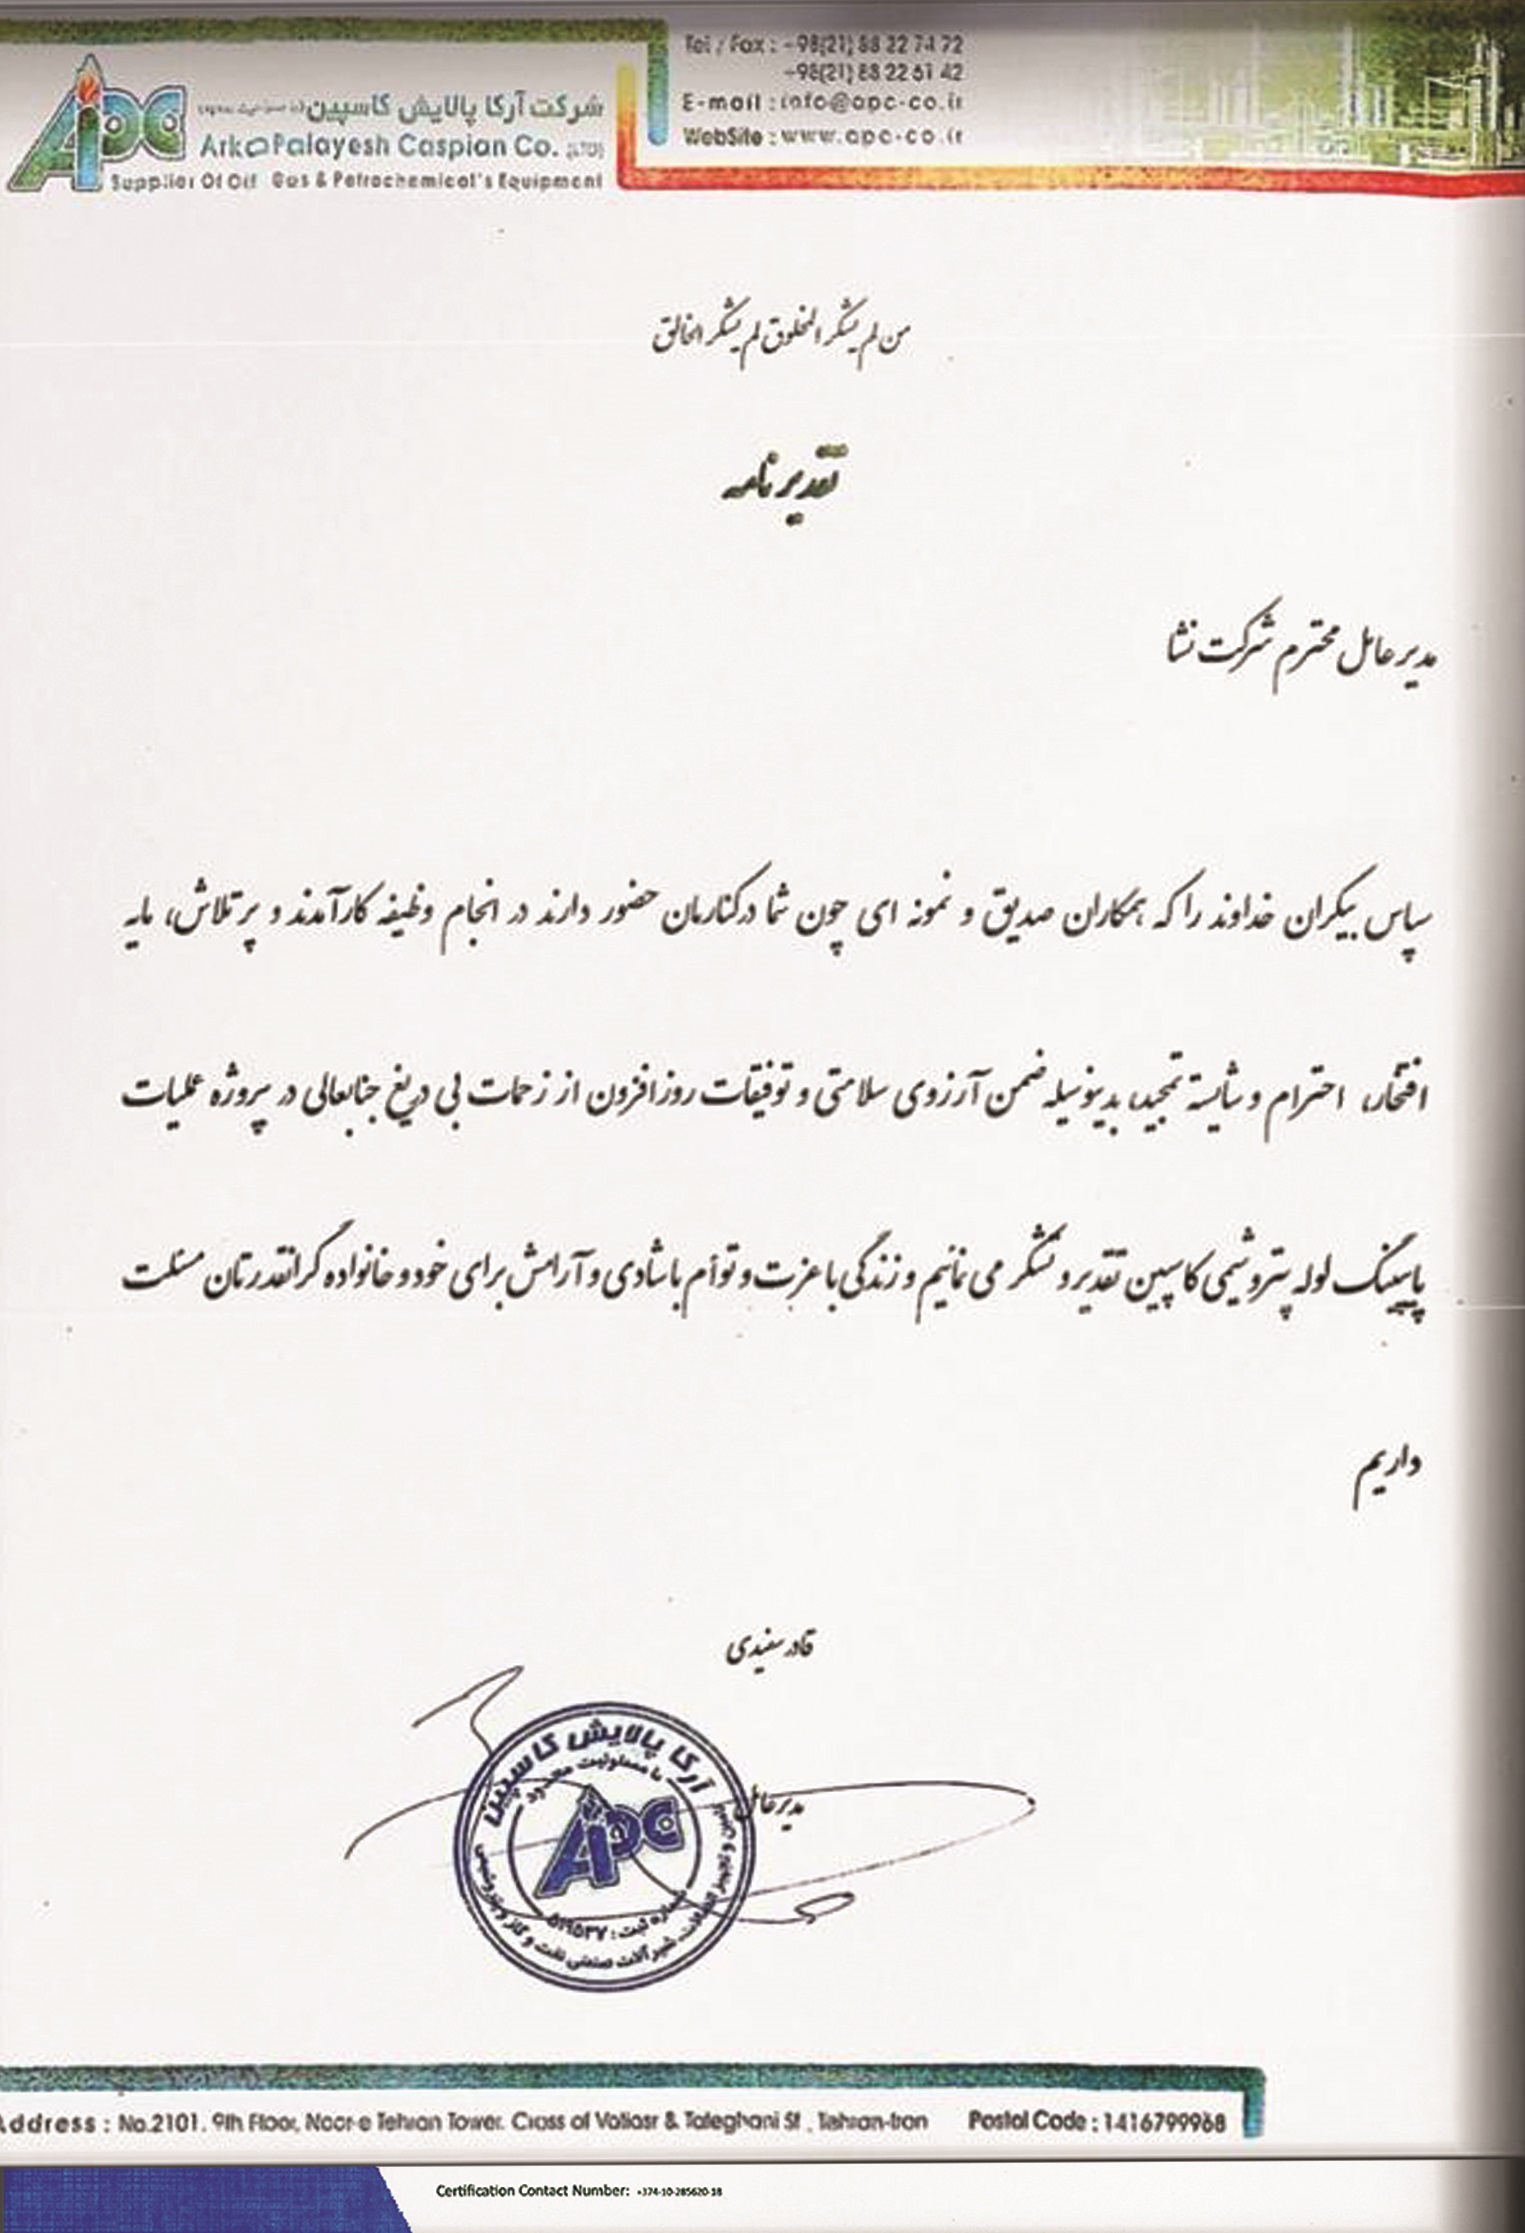 Tel / Fax : +98(21) 88 22 74 72
+98(21) 88 22 61 42
E-mail : info@apc-co.ir
WebSite : www.apc-co.ir
APC
شرکت آرکا پالایش کاسپین (با مسئولیت محدود)
Arka Palayesh Caspian Co. (LTD)
Supplier Of Oil Gas & Petrochemical's Equipment
من لم یشکر المخلوق لم یشکر الخالق
تقدیر نامه
مدیر عامل محترم شرکت نشا
سپاس بیکران خداوند را که همکاران صدیق و نمونه ای چون شما در کنارمان حضور دارند در انجام وظیفه کارآمدند و پر تلاش، مایه
افتخار، احترام و شایسته تمجید، بدینوسیله ضمن آرزوی سلامتی و توفیقات روز افزون از زحمات بی دریغ جنابعالی در پروژه عملیات
پایپینگ لوله پتروشیمی کاسپین تقدیر و تشکر می نمائیم و زندگی با عزت و توأم با شادی و آرامش برای خود و خانواده گرانقدرتان مسئلت
داریم
قادر سفیدی
مدیرعامل
آرکا پالایش کاسپین
با مسئولیت محدود
APC
شماره ثبت : ۵۱۹۵۳۷
اتصالات، شیرآلات صنعتی نفت و گاز و پتروشیمی
Address : No.2101, 9th Floor, Noor-e Tehran Tower, Cross of Valiasr & Taleghani St , Tehran-Iran Postal Code : 1416799968
Certification Contact Number: +374-10-285620-18